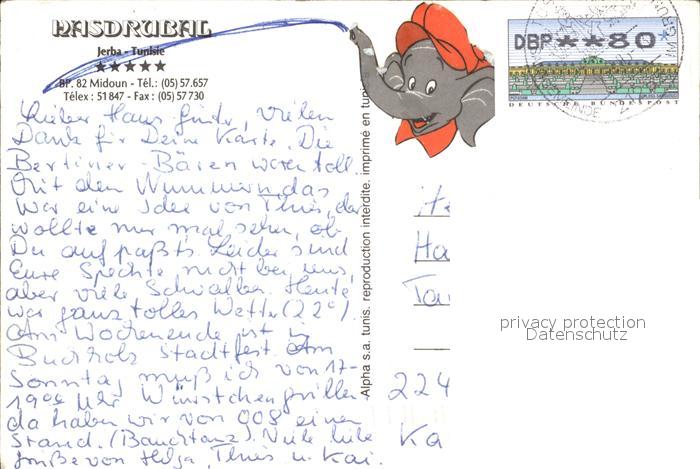 HASDRUBAL
Jerba - Tunisie
★★★★★
BP. 82 Midoun - Tél.: (05) 57.657
Télex : 51 847 - Fax : (05) 57 730
Lieber Hans, vielen
Dank für Deine Karte. Die
Berliner-Bären waren toll
Mit den Nummern, das
war eine Idee von Thies, der
wollte nur mal sehn, ob
Du aufpaßt. Leider sind
Eure Spechte nicht bei uns,
aber viele Schwalben. Heute
war ganz tolles Wetter (22°).
Am Wochenende ist in
Buchholz Stadtfest. Am
Sonntag muß ich von 17-
19°° Uhr Würstchen grillen
da haben wir von 008 einen
Stand. (Bauchtanz). Viele liebe
Grüße von Helga, Thies u. Kai.
Alpha s.a. tunis. reproduction interdite. imprimé en tunis
DBP**80
DEUTSCHE BUNDESPOST
Ha
Tau
224
Ka
privacy protection
Datenschutz